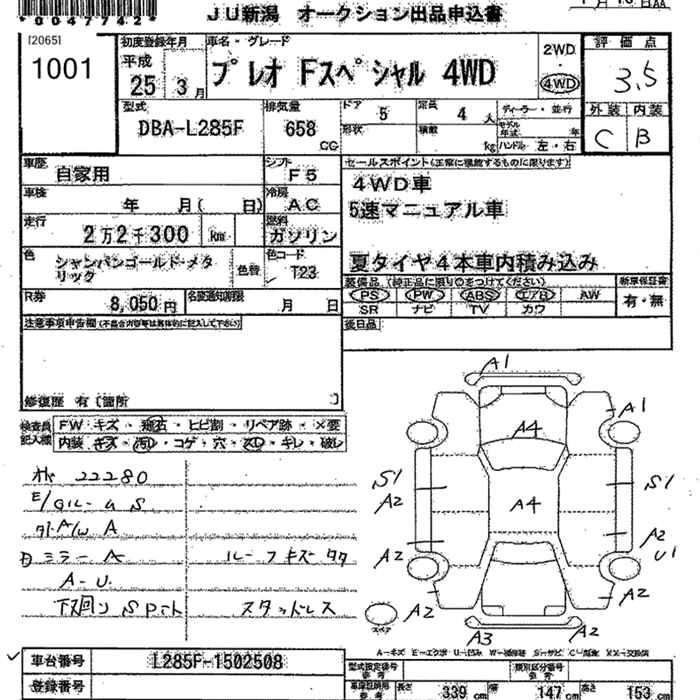 *0047742*
JU新潟 オークション出品申込書
[2065]
1001
初度登録年月
平成
25 3月
車名・グレード
プレオ Fスペシャル 4WD
2WD
・
4WD
評価点
3.5
外装 内装
C B
型式
DBA-L285F
排気量
658
CC
ドア
5
定員
4 人
形状
積載
kg
ディーラー・並行
モデル年式 年
ハンドル 左・右
車歴
自家用
シフト
F5
車検
年 月( 日)
冷房
AC
走行
2万2千300 km
燃料
ガソリン
色
シャンパンゴールド・メタリック
色替
色コード
T23
R券
8,050円
名変通知期限
月 日
セールスポイント(正常に機能するものに限ります)
4WD車
5速マニュアル車
夏タイヤ4本車内積み込み
装備品(純正品に限り○をつけてください)
PS PW ABS エアB AW
SR ナビ TV カワ
新車保証書
有・無
後日品
注意事項申告欄(不具合内容等は具体的に記入して下さい)
修復歴 有〔箇所 〕
検査員記入欄
FW キズ・飛石・ヒビ割・リペア跡・×要
内装 キズ・汚レ・コゲ・穴・スレ・キレ・破レ
22280
A
ミラー A
ルーフキズ
A-U
下回り
スタッドレス
A1
A1
A4
S1
A2
A4
S1
A2
A2
U1
A2
A2
A3
A2
スペア
A-キズ E-エクボ U-凹み
車台番号
L285F-1502508
登録番号
型式指定番号
類別区分番号
長さ 339 cm
幅 147 cm
高さ 153 cm